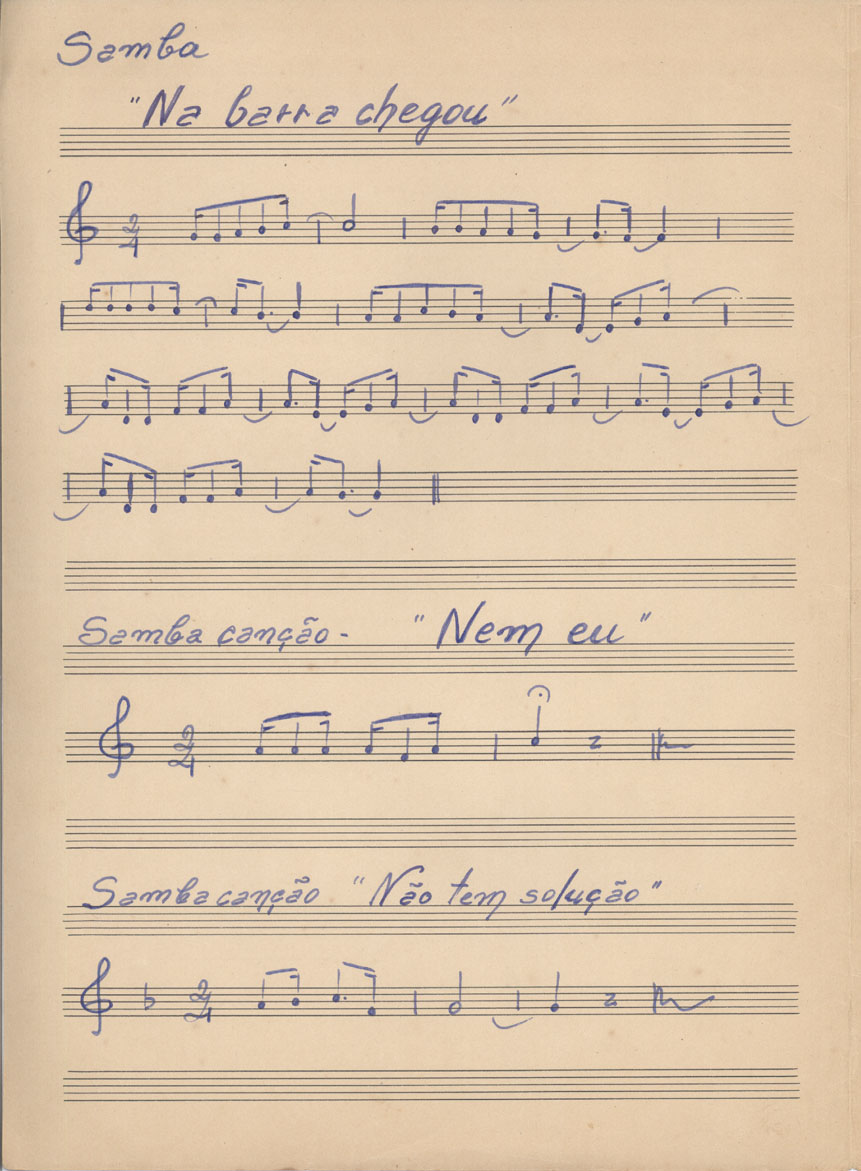 Samba
"Na barra chegou"
2/4
Samba canção - "Nem eu"
2/4
Samba canção "Não tem solução"
2/4